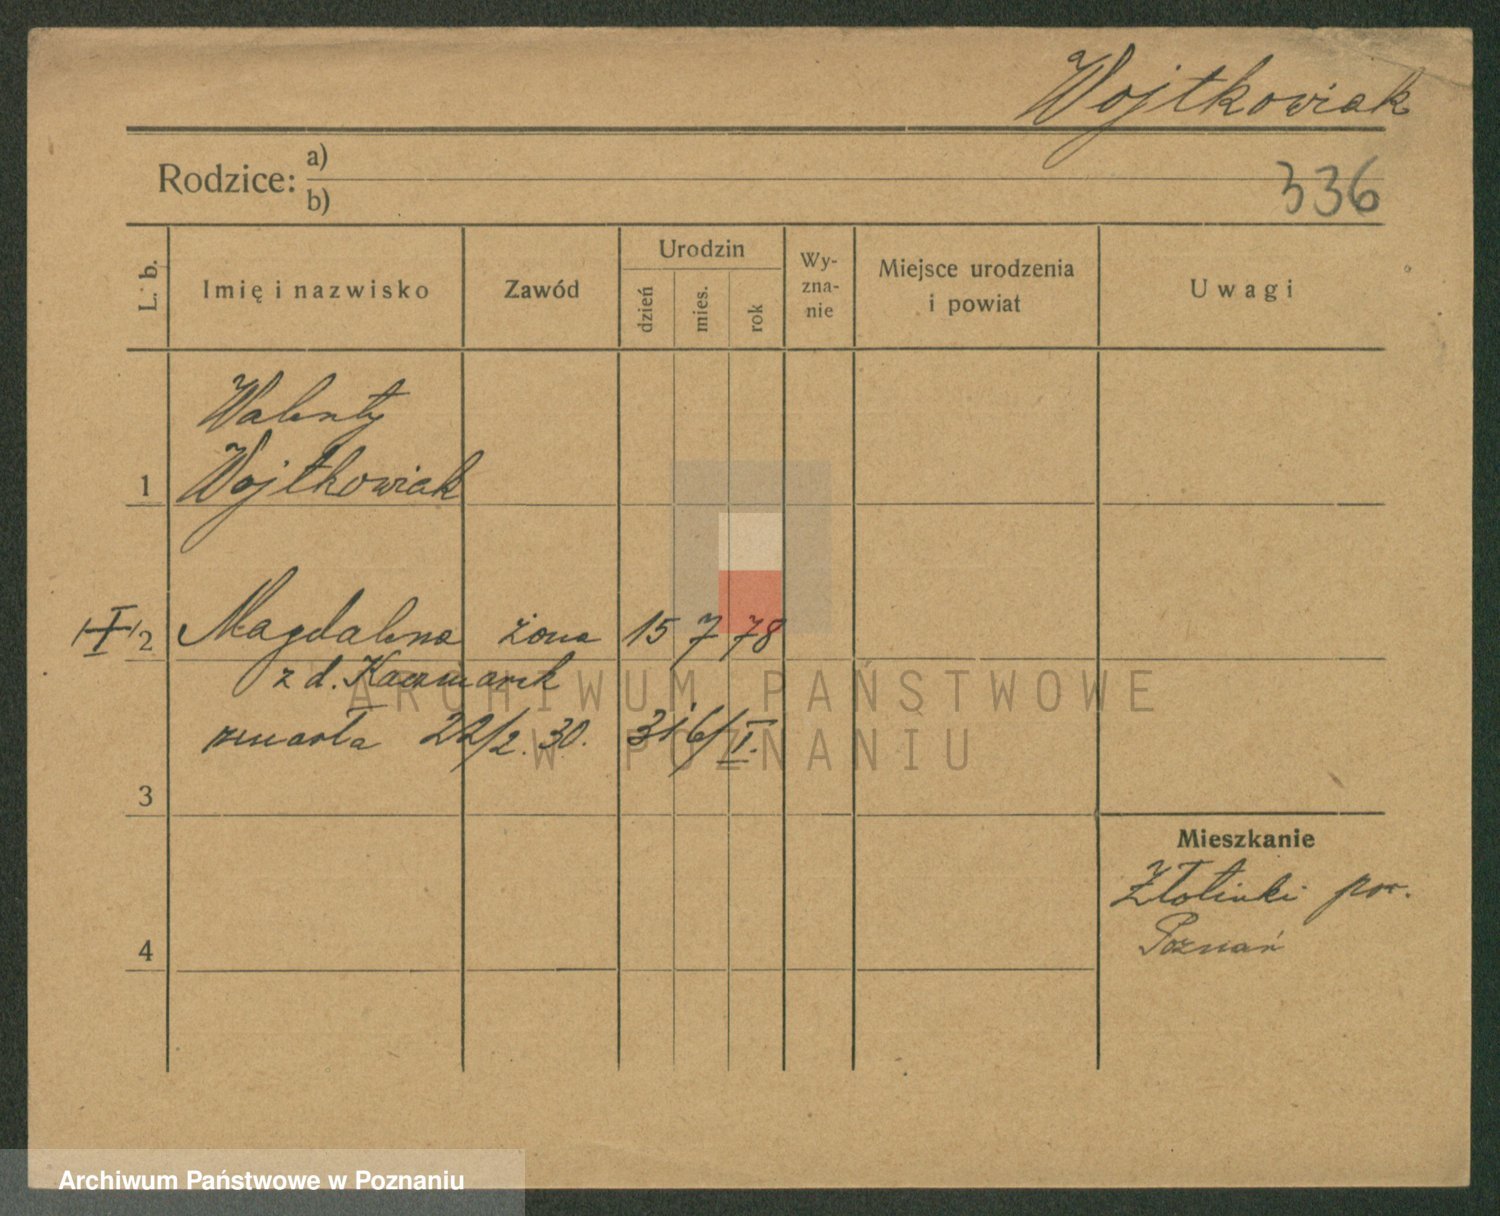 Wojtkowiak
Rodzice: a)
b)
336
L. b.
Imię i nazwisko
Zawód
Urodzin
dzień
mies.
rok
Wy-
zna-
nie
Miejsce urodzenia
i powiat
Uwagi
Walenty
1 Wojtkowiak
I 2 Magdalena żona 15 7 78
z d. Kaczmarek
zmarła 22/2. 30. 316/I.
3
Mieszkanie
Złotniki pow.
Poznań
4
ARCHIWUM PAŃSTWOWE
W POZNANIU
Archiwum Państwowe w Poznaniu